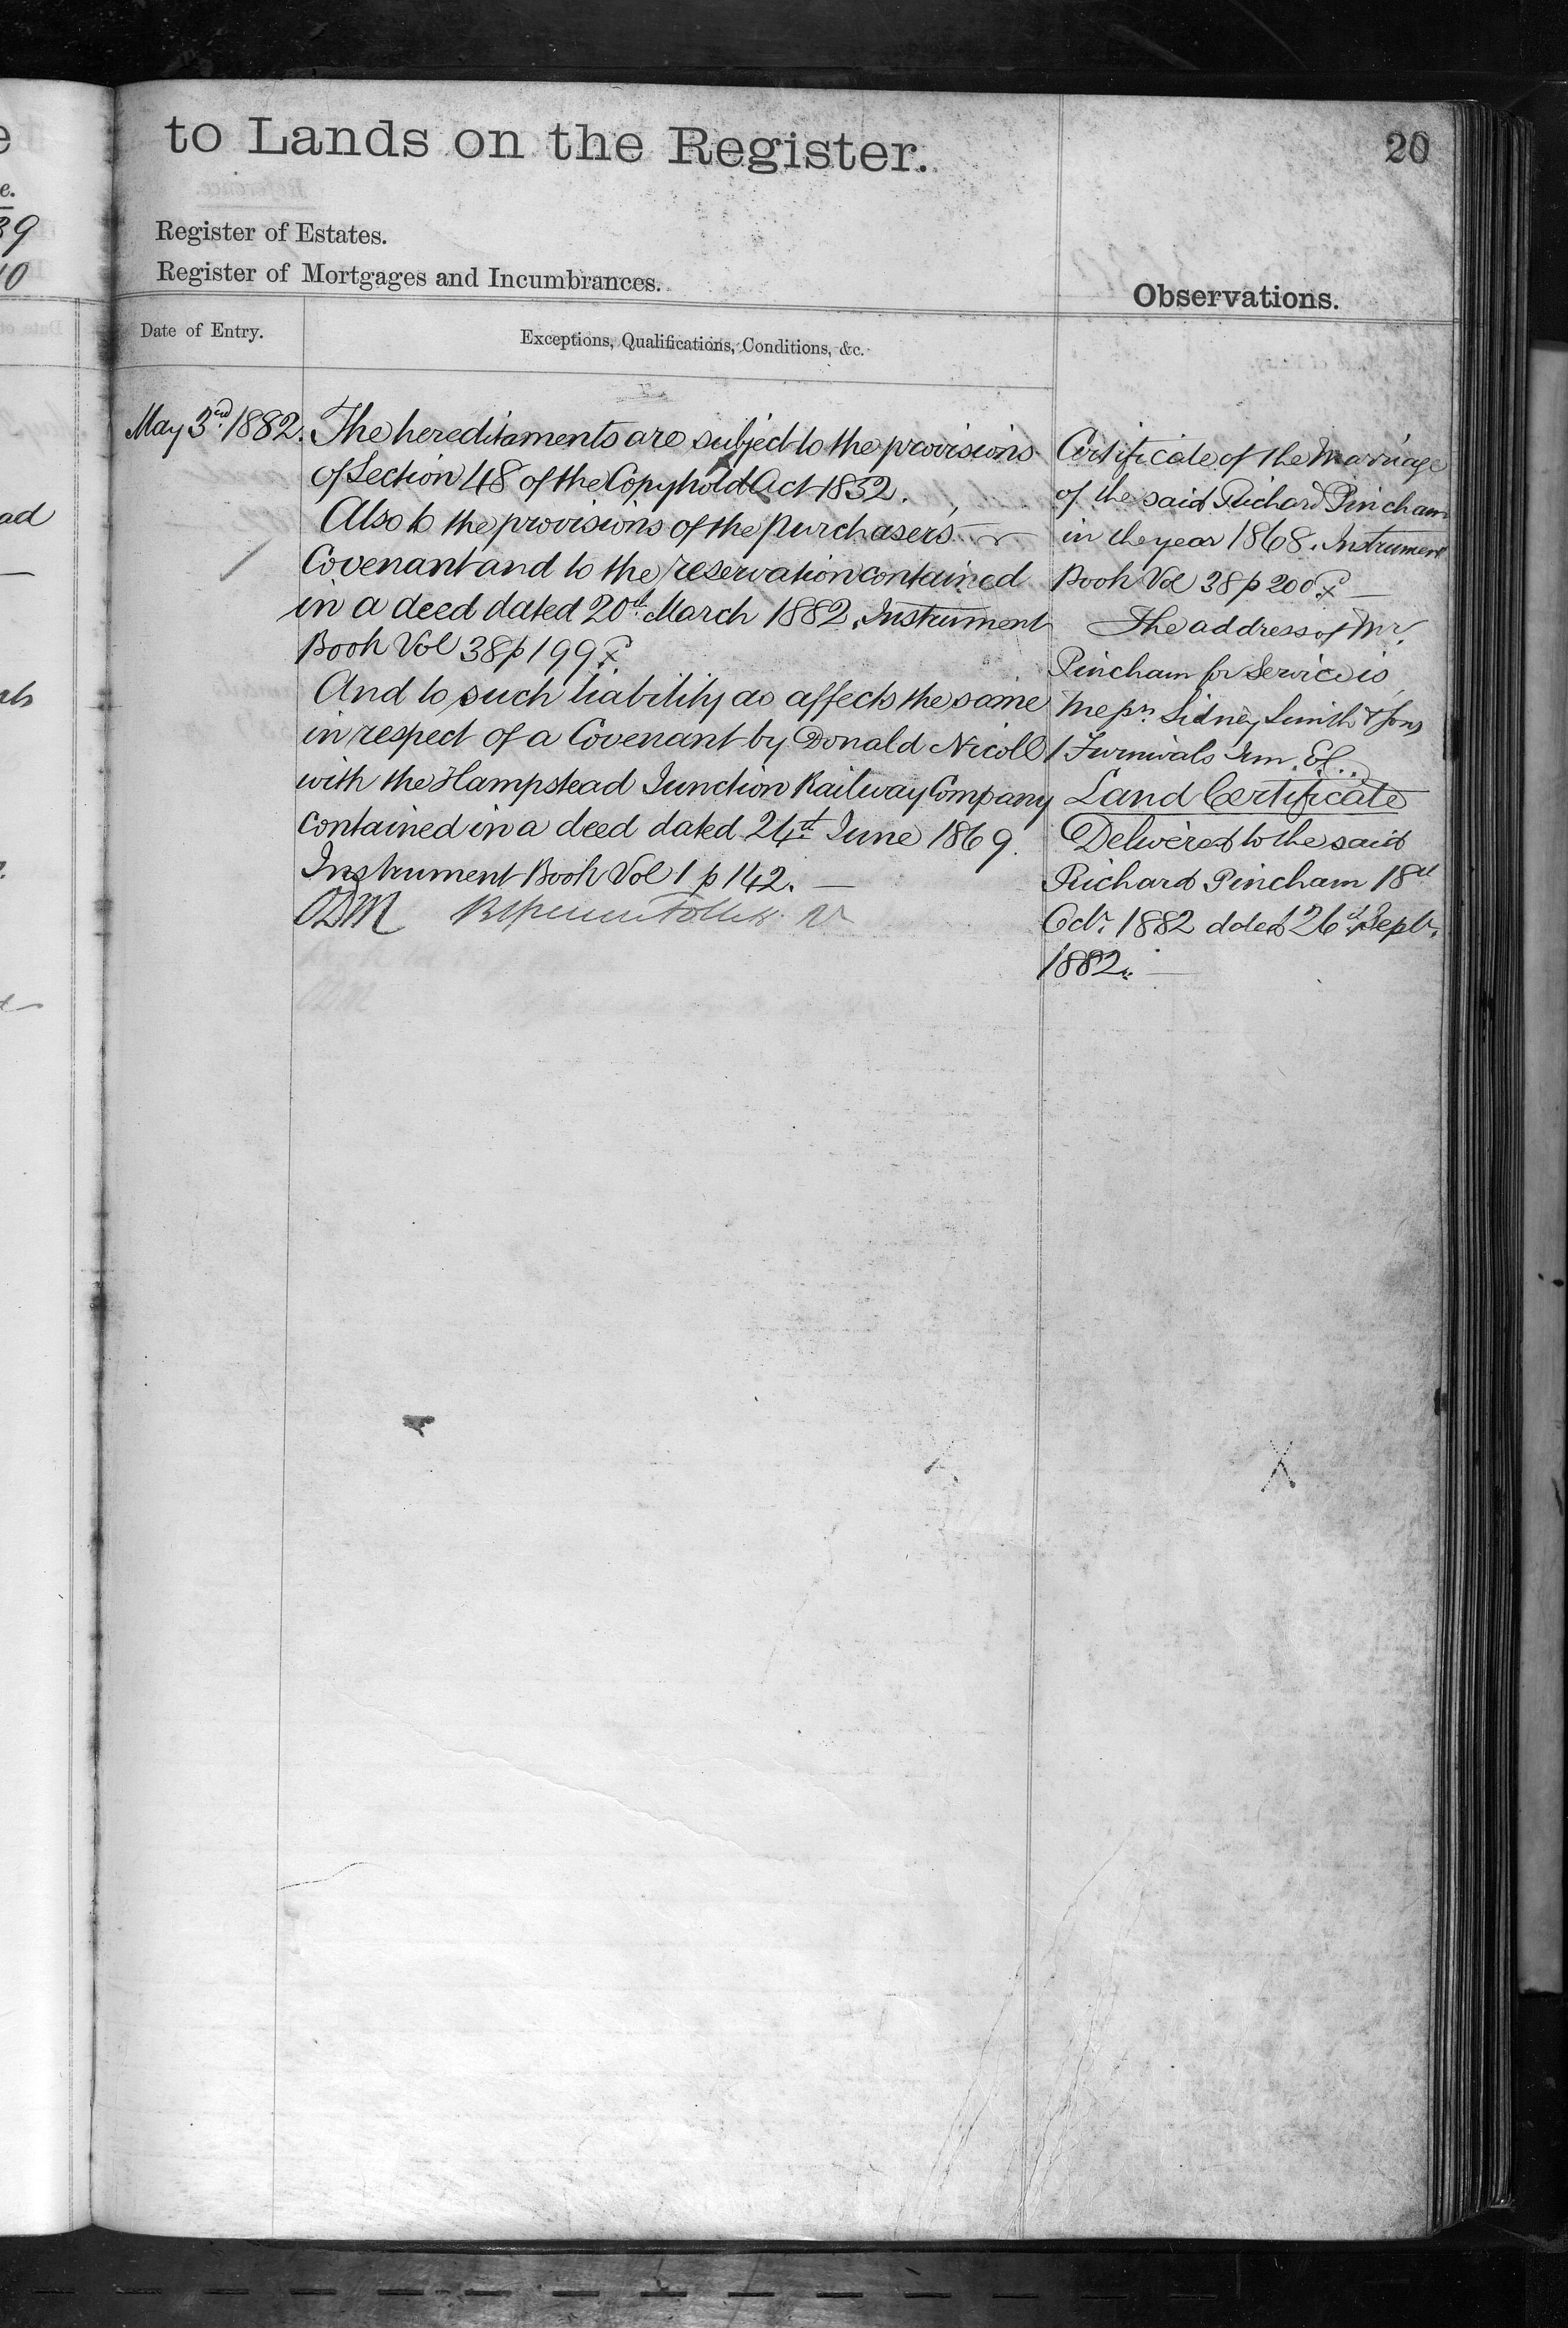 to Lands on the Register.
20
Register of Estates.
Register of Mortgages and Incumbrances.
Observations.
Date of Entry.
Exceptions, Qualifications, Conditions, &c.
May 3rd 1882.
The hereditaments are subject to the provisions
of Section 48 of the Copyhold Act 1852.
Also to the provisions of the purchasers
Covenant and to the reservation contained
in a deed dated 20th March 1882. Instrument
Book Vol 38 p 199
And to such liability as affects the same
in respect of a Covenant by Donald Nicoll
with the Hampstead Junction Railway Company
contained in a deed dated 24th June 1869.
Instrument Book Vol 1 p 142.
Certificate of the Marriage
of the said Richard Pincham
in the year 1868. Instrument
Book Vol 38 p 200
The address of Mr.
Pincham for Service is
Messrs Sidney Smith & Sons
1 Furnivals Inn.
Land Certificate
Delivered to the said
Richard Pincham 18th
Octr. 1882 dated 26th Septr.
1882.